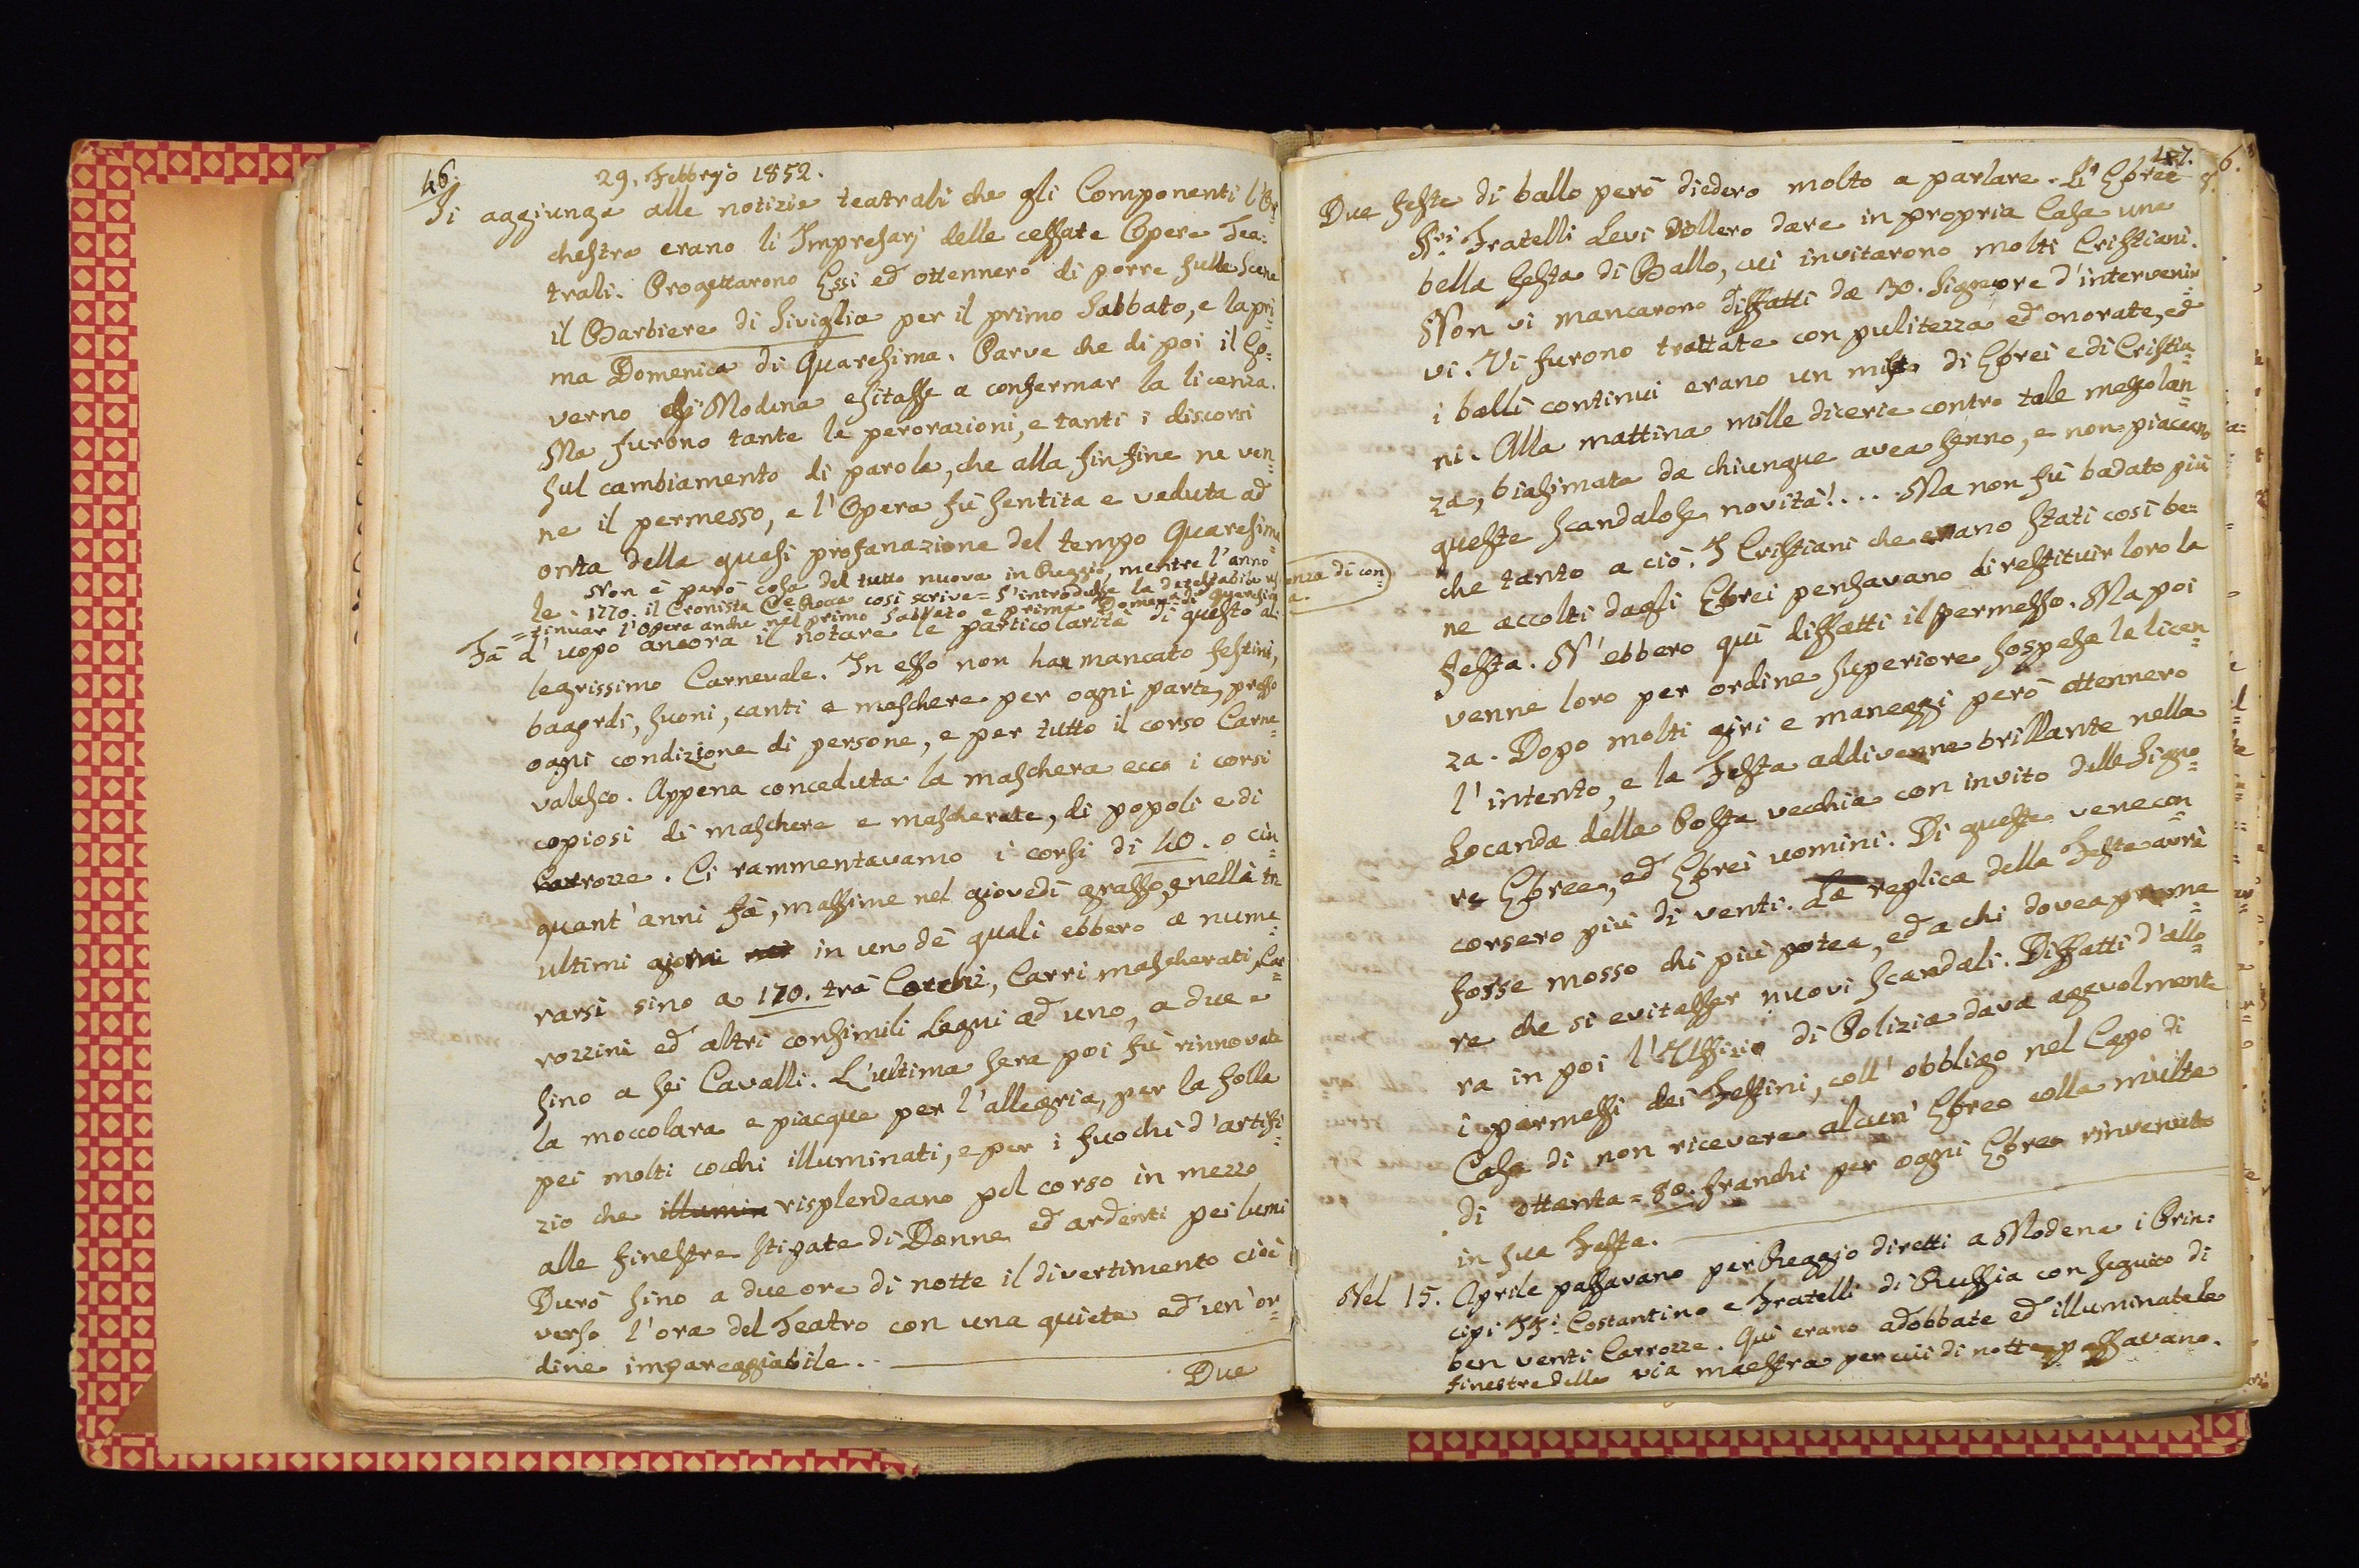 46.
29. Febbrajo 1852.
Si aggiunga alle notizie teatrali che gli Componenti l'Or=
chestra erano li Impresarj delle cessate Opere Tea=
trali. Progettarono Essi ed ottennero di porre sulle Scene
il Barbiere di Siviglia per il primo Sabbato, e la pri=
ma Domenica di Quaresima. Parve che di poi il Go=
verno di Modena esitasse a confermar la licenza.
Ma furono tante le perorazioni, e tanti i discorsi
sul cambiamento di parola, che alla fin fine ne ven=
ne il permesso, e l'Opera fù sentita e veduta ad
onta della quasi profanazione del tempo Quaresima=
le.
Non è però cosa del tutto nuova in Reggio, mentre l'anno
1770. il Cronista Rocca così scrive = S'introdusse la detestabile us
enza di con=
=tinuar l'Opera anche nel primo Sabbato e prima Domen.a di Quaresim
a.
Fà d'uopo ancora il notare le particolarità di questo al=
legrissimo Carnevale. In esso non han mancato festini,
bagordi, suoni, canti e maschere per ogni parte, presso
ogni condizione di persone, e per tutto il corso Carne=
valesco. Appena conceduta la maschera ecco i corsi
copiosi di maschere e mascherate, di popoli e di
Carrozze. Ci rammentavamo i corsi di 40. o cin=
quant'anni fà, massime nel giovedì grasso, e nelli tre
ultimi giorni in uno de' quali ebbero a nume=
rarsi sino a 170. trà Cocchi, Carri mascherati, Car=
rozzini ed altri consimili Legni ad uno, a due e
sino a sei Cavalli. L'ultima sera poi fù rinnovata
la moccolara e piacque per l'allegria, per la folla
pei molti cocchi illuminati, e per i fuochi d'artifi=
zio che illumin risplendeano pel corso in mezzo
alle finestre stipate di Donne ed ardenti pei lumi
Durò sino a due ore di notte il divertimento cioè
verso l'ora del Teatro con una quiete ed un'or=
dine impareggiabile.
Due
47.
Due feste di ballo però diedero molto a parlare. Li Ebree
Sri. Fratelli Levi vollero dare in propria Casa una
bella festa di Ballo, cui invitarono molti Cristiani.
Non vi mancarono diffatti da 30. Signore d'intervenir=
vi. Vi furono trattate con pulitezza ed onorate, ed
i balli continui erano un misto di Ebrei e di Cristia=
ni. Alla mattina mille dicerie contro tale mescolan=
za, biasimata da chiunque avea senno, e non piaceano
queste scandalose novità!.... Ma non fù badato più
che tanto a ciò. I Cristiani che erano stati così be=
ne accolti dagli Ebrei pensavano di restituir loro la
festa. N'ebbero quì diffatti il permesso. Ma poi
venne loro per ordine superiore sospesa la licen=
za. Dopo molti giri e maneggi però ottennero
l'intento, e la Festa addivenne brillante nella
Locanda della Posta vecchia con invito delle Signo=
re Ebree, ed Ebrei uomini. Di queste vene con=
corsero più di venti. La replica della Festa avrà
fosse mosso chi più potea, ed a chi dovea preme=
re che si evitasser nuovi scandali. Diffatti d'allo=
ra in poi l'Uffizio di Polizia dava agevolmente
i permessi dei Festini, coll'obbligo nel Capo di
Casa di non ricevere alcun' Ebreo colla multa
di ottanta = 80. franchi per ogni Ebreo rinvenuto
in sua Festa.
Nel 15. Aprile passavano per Reggio diretti a Modena i Prin=
cipi II. Costantino e Fratelli di Russia con seguito di
ben venti Carrozze. Quì erano addobbate ed illuminate le
finestre della via maestra per cui di notte passavano.